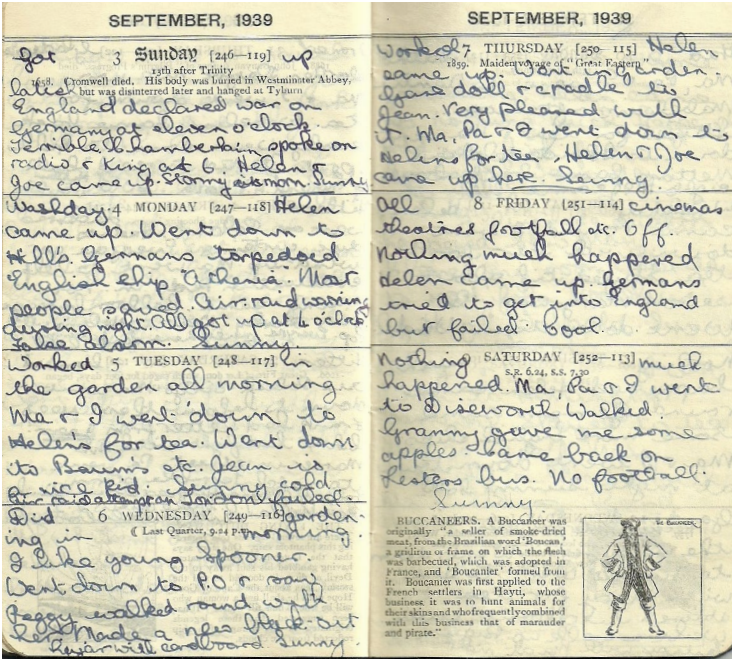 SEPTEMBER, 1939
Got 3 Sunday [246—119] up
13th after Trinity
1658. Cromwell died. His body was buried in Westminster Abbey,
late. but was disinterred later and hanged at Tyburn
England declared war on
Germany at eleven o'clock.
Terrible. Chamberlain spoke on
radio & King at 6. Helen &
Joe came up. Stormy in morn. Sunny
Washday. 4 MONDAY [247—118] Helen
came up. Went down to
Hill's. Germans torpedoed
English ship "Athenia". Most
people saved. Air raid warning
during night. All got up at 4 o'clock
False alarm. Sunny.
Worked 5 TUESDAY [248—117] in
the garden all morning
Ma & I went down to
Helen's for tea. Went down
to Baum's etc. Jean is
nice kid. Sunny cold
Air raid attempt on London failed.
Did 6 WEDNESDAY [249—116] garden-
ing in ☾ Last Quarter, 9.24 p.m. morning.
I like young Spooner.
Went down to P.O & saw
Peggy walked round with
her. Made a new black-out
with cardboard Sunny.
SEPTEMBER, 1939
Worked 7 THURSDAY [250—115] Helen
1859. Maiden voyage of "Great Eastern"
came up. Work in garden
Gave doll & cradle to
Jean. Very pleased with
it. Ma, Pa & I went down to
Helens for tea, Helen & Joe
came up here. Sunny.
All 8 FRIDAY [251—114] cinemas
theatres football etc. Off.
Nothing much happened
Helen came up. Germans
tried to get into England
but failed. Cool.
Nothing SATURDAY [252—113] much
S.R. 6.24, S.S. 7.30
happened. Ma, Pa & I went
to Diseworth Walked.
Granny gave me some
apples. Came back on
Lesters bus. No football.
Sunny.
BUCCANEERS. A Buccaneer was
originally "a seller of smoke-dried
meat, from the Brazilian word 'Boucan,'
a gridiron or frame on which the flesh
was barbecued, which was adopted in
France, and 'Boucanier' formed from
it. Boucanier was first applied to the
French settlers in Hayti, whose
business it was to hunt animals for
their skins and who frequently combined
with this business that of marauder
and pirate."
THE BUCCANEER.